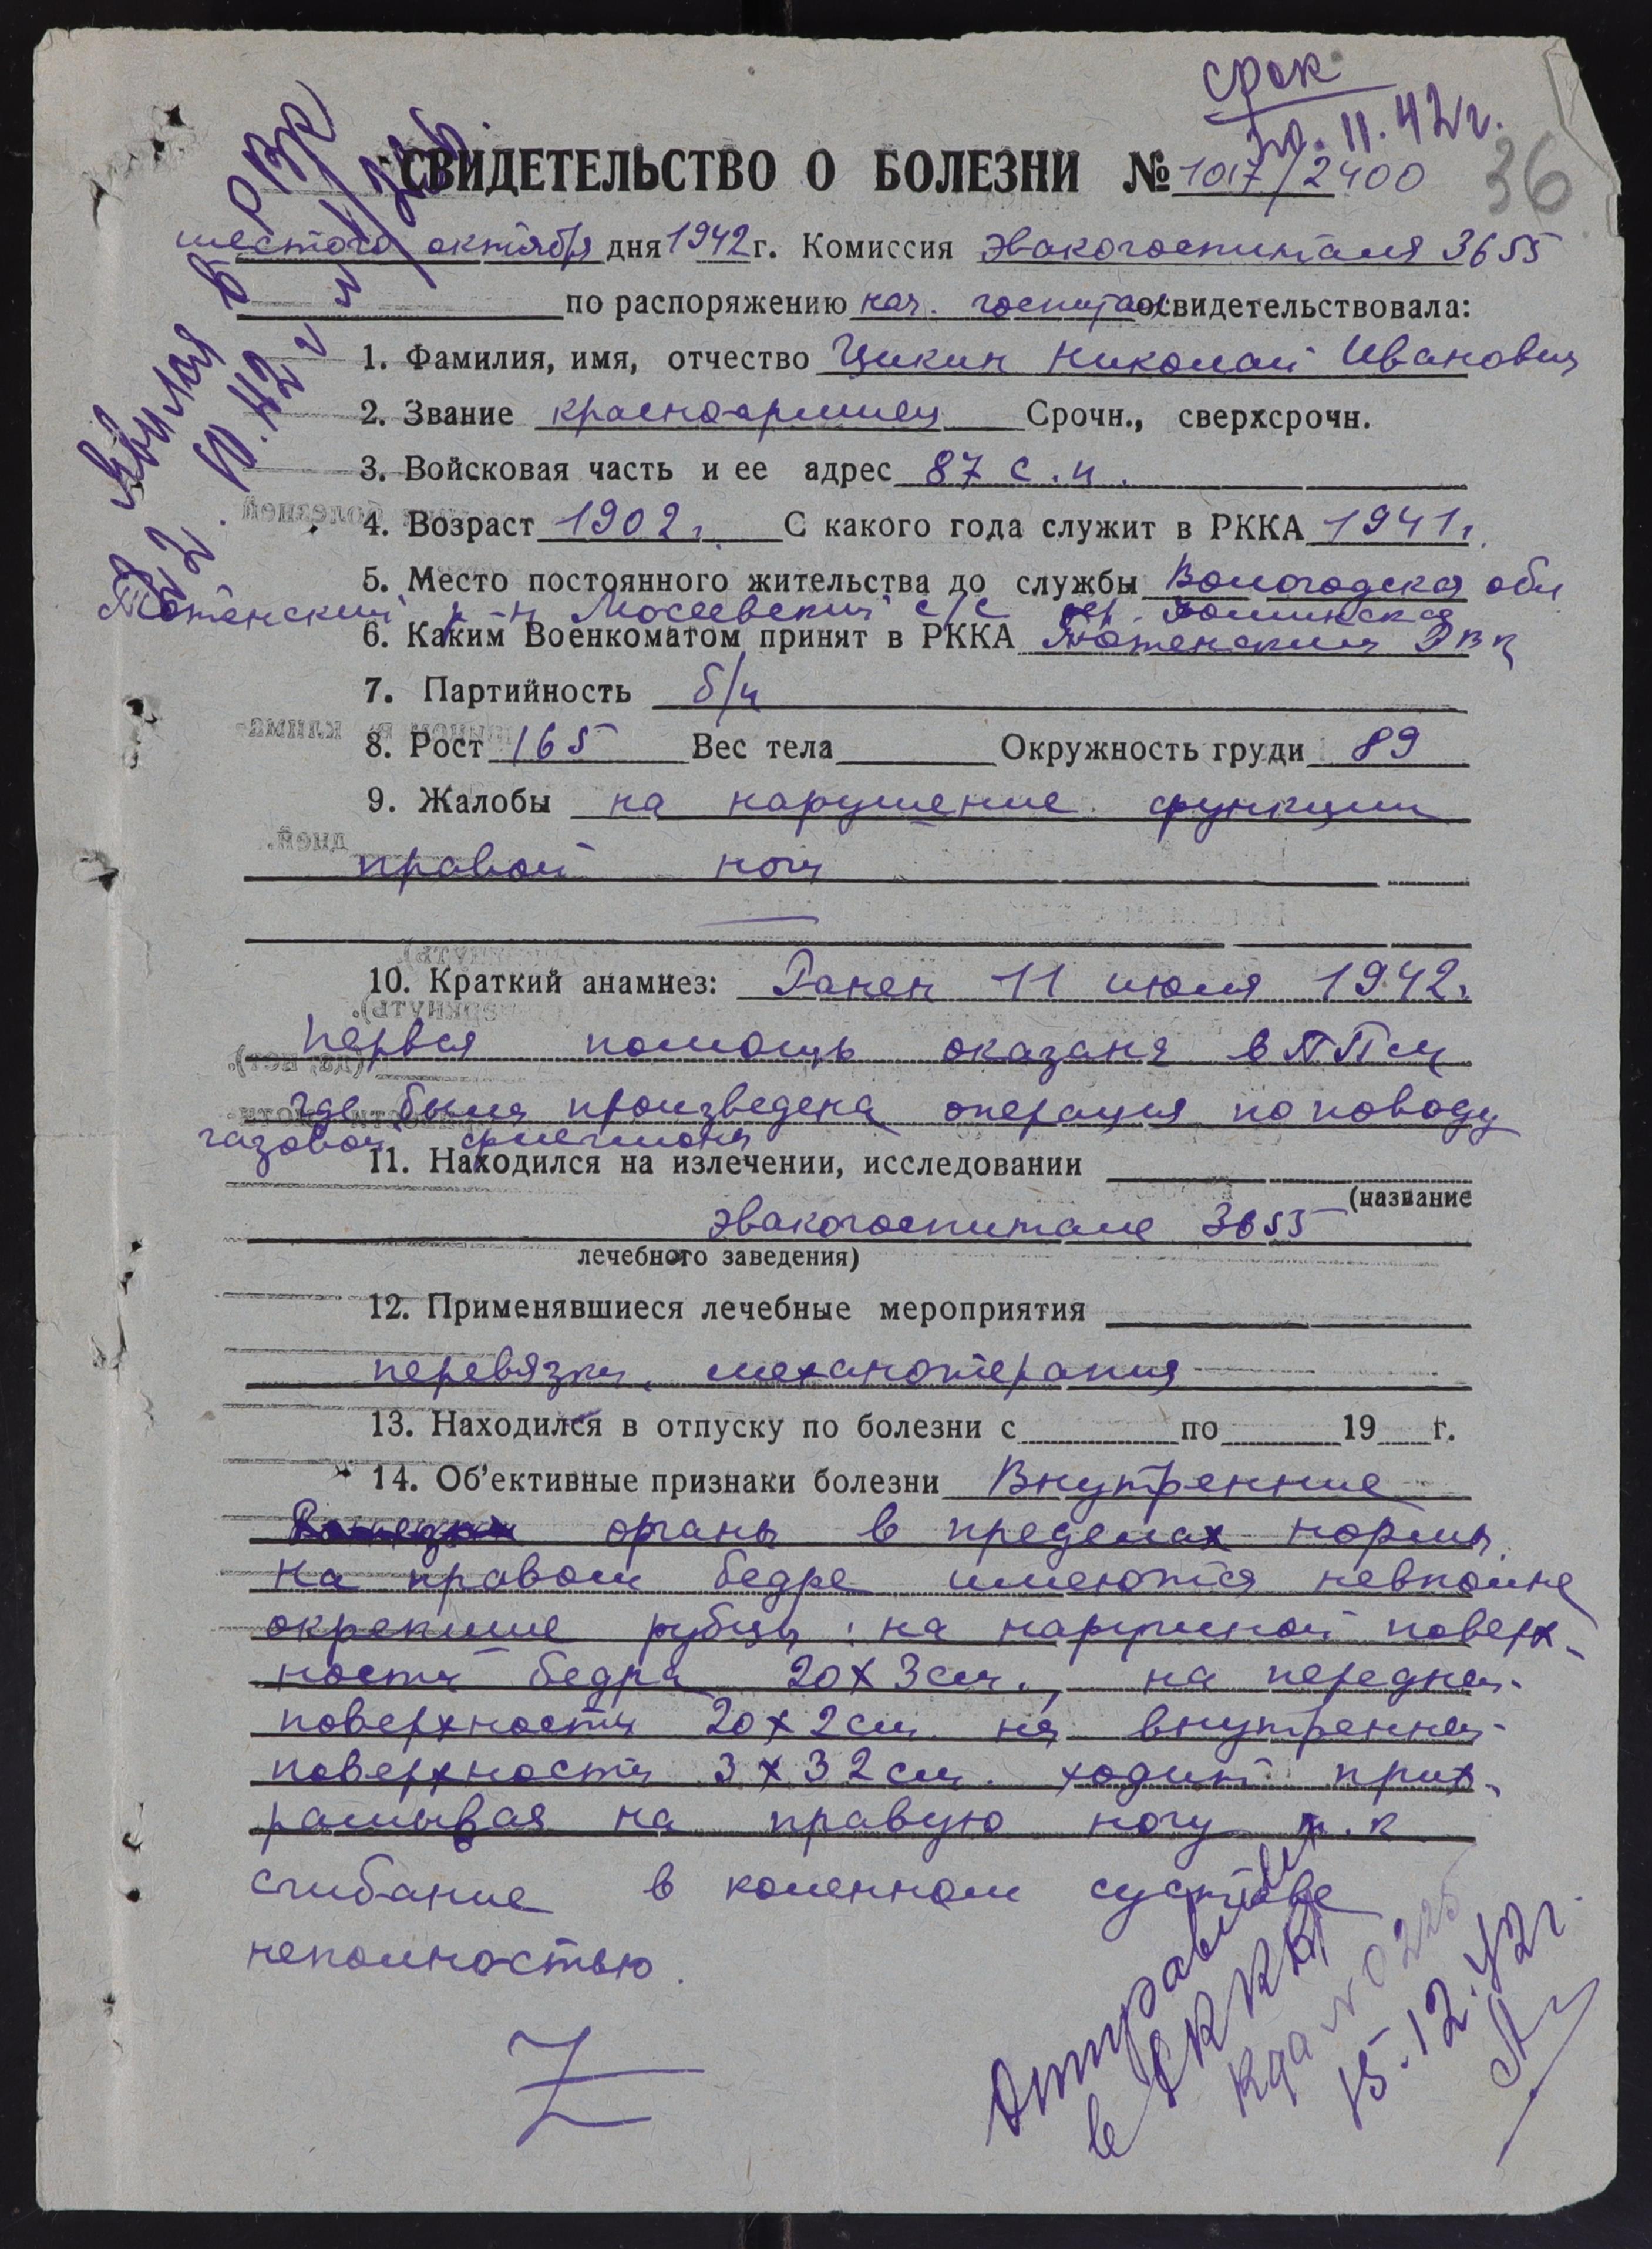 срок
30.11.42г.
36
СВИДЕТЕЛЬСТВО О БОЛЕЗНИ № 1017/2400
шестого октября дня 1942 г. Комиссия Эвакогоспиталя 3655
по распоряжению нач. госпитал освидетельствовала:
1. Фамилия, имя, отчество Цикин Николай Иванович
2. Звание красноармиец Срочн., сверхсрочн.
3. Войсковая часть и ее адрес 87 с.п.
4. Возраст 1902г. С какого года служит в РККА 1941г.
5. Место постоянного жительства до службы Вологодская обл
Тотемский р-н Мосеевский с/с дер.
6. Каким Военкоматом принят в РККА Тотемским РВК
7. Партийность б/п
8. Рост 165 Вес тела Окружность груди 89
9. Жалобы на нарушение функции
правой ноги
10. Краткий анамнез: Ранен 11 июля 1942г.
первая помощь оказана в ППГ
где была произведена операция по поводу
газовой флегмоны
11. Находился на излечении, исследовании
(название
эвакогоспитале 3655
лечебного заведения)
12. Применявшиеся лечебные мероприятия
перевязки, механотерапия
13. Находился в отпуску по болезни с по 19 г.
14. Об'ективные признаки болезни Внутренние
органы в пределах нормы.
На правом бедре имеются невполне
окрепшие рубцы: на наружной поверх-
ности бедра 20х3см., на передней
поверхности 20х2см на внутренней
поверхности 3х32см. ходит прих-
рамывая на правую ногу т.к
сгибание в коленном суставе
неполностью.
Явился в РВК
22.10.42г
Отправлен
в РККА
15.12.42г.